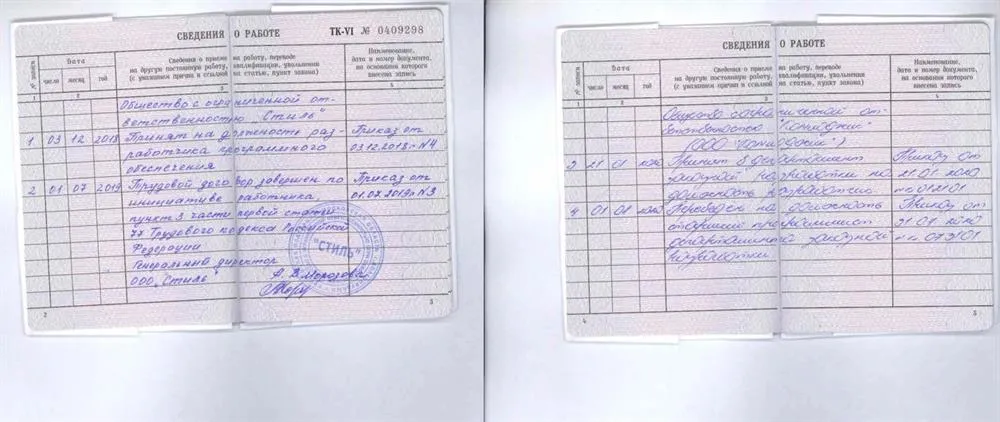 СВЕДЕНИЯ О РАБОТЕ
ТК-VI № 0409298
№ записи
Дата
число
месяц
год
Сведения о приеме на работу, переводе
на другую постоянную работу, квалификации, увольнении
(с указанием причин и ссылкой на статью, пункт закона)
Наименование,
дата и номер документа,
на основании которого
внесена запись
1 2 3 4
Общество с ограниченной от-
ветственностью "Стиль"
1 03 12 2018 Принят на должность раз- Приказ от
работчика программного 03.12.2018г N4
обеспечения
2 01 07 2019 Трудовой договор завершен по Приказ от
инициативе работника, 01.07.2019г N3
пункт 3 части первой статьи
77 Трудового кодекса Российской
Федерации
Генеральный директор
ООО "Стиль" А.В. Морозова
"СТИЛЬ"
2 3
СВЕДЕНИЯ О РАБОТЕ
№ записи
Дата
число
месяц
год
Сведения о приеме на работу, переводе
на другую постоянную работу, квалификации, увольнении
(с указанием причин и ссылкой на статью, пункт закона)
Наименование,
дата и номер документа,
на основании которого
внесена запись
1 2 3 4
Общество с ограниченной от-
ветственностью
(ООО
21 01 Принят в департамент Приказ от
заказной разработки на 21 01
должность
4 01 01 Переведен на должность Приказ от
старший программист
департамента заказной
разработки
4 5